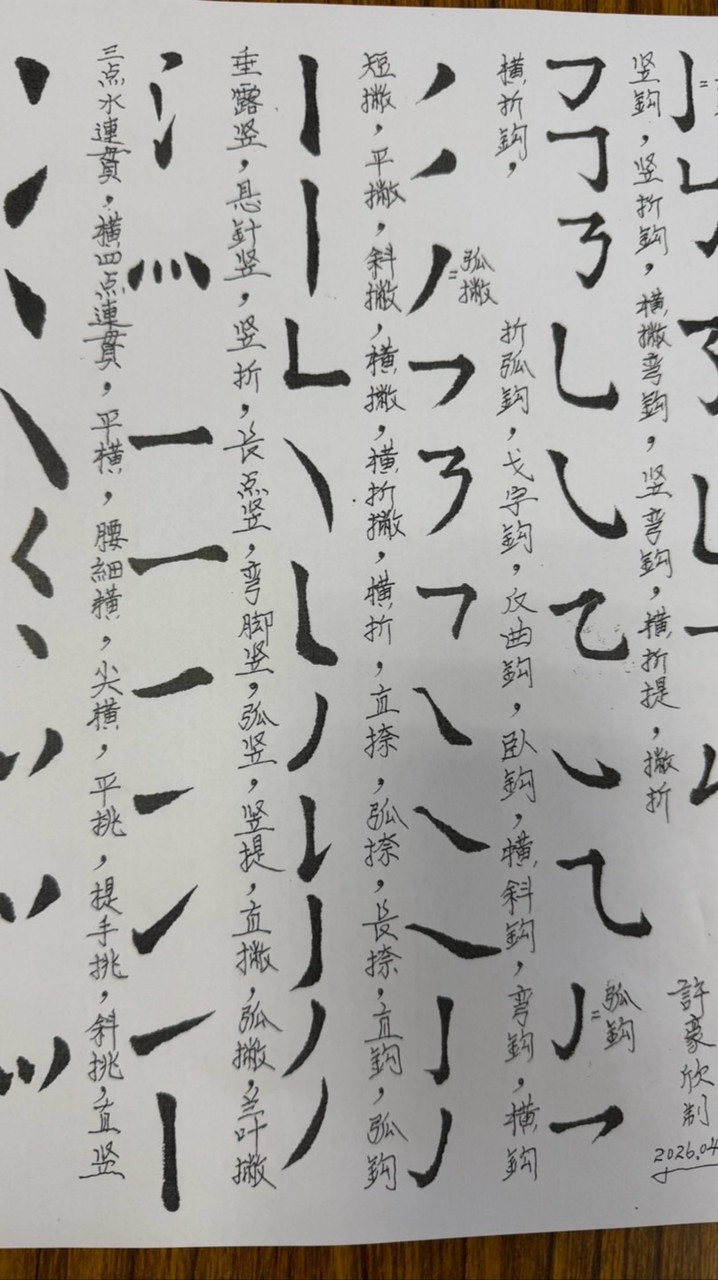 三点水連貫，横四点連貫，平横，腰細横，尖横，平挑，提手挑，斜挑，直竖
垂露竖，悬針竖，竖折，長点竖，弯脚竖，弧竖，竖提，直撇，弧撇，兰叶撇
短撇，平撇，斜撇，横撇，横折撇，横折，直捺，弧捺，長捺，直鈎，弧鈎
=弧撇
横折鈎，折弧鈎，戈字鈎，反曲鈎，卧鈎，横斜鈎，弯鈎，横鈎
=弧鈎
竖鈎，竖折鈎，横撇弯鈎，竖弯鈎，横折提，撇折
許豪欣制
2026.04